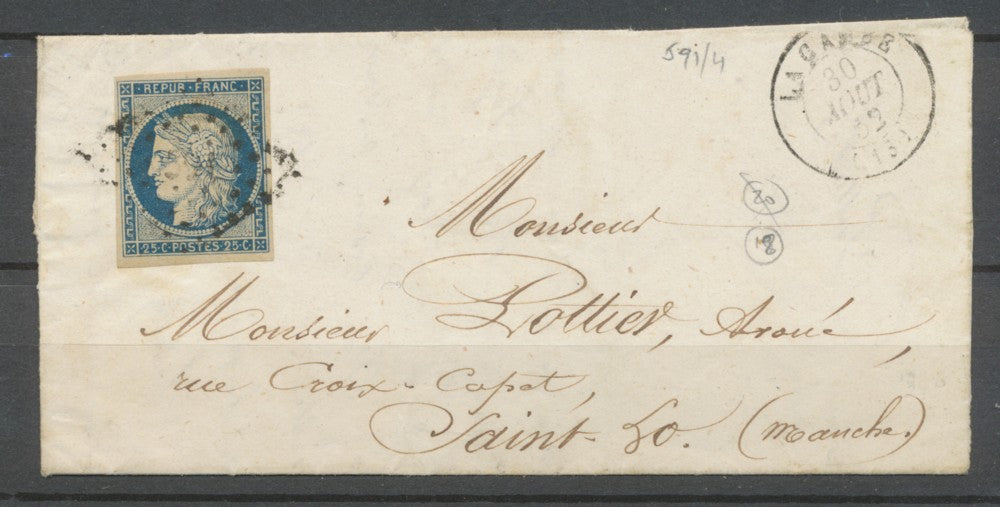 REPUB·FRANC·
25·C·POSTES·25·C·
59i/4
30
AOUT
52
Monsieur
Monsieur Pottier, Avoué,
rue Croix-Capet,
Saint-Lo. (manche.)